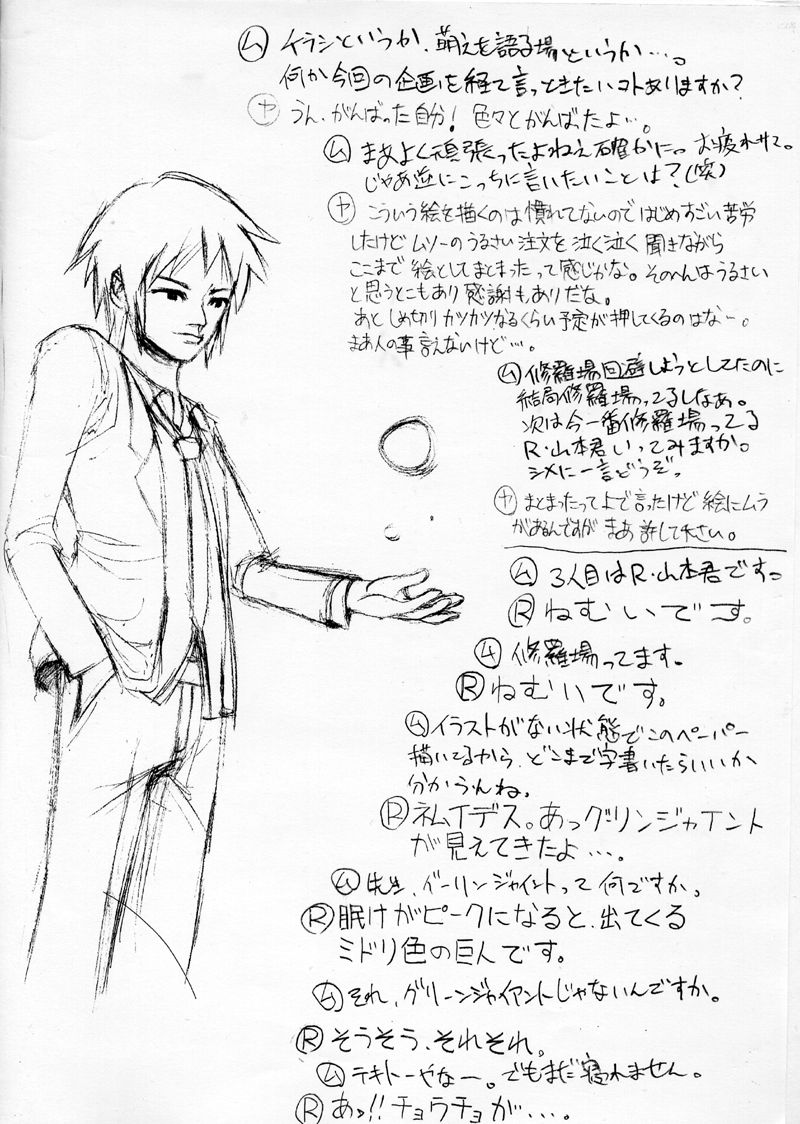 ム イラシというか、萌えを語る場というか…。
何か今回の企画を経て言っときたいコトありますか？
ヤ うん、がんばった自分！色々とがんばたよ…。
ム まあよく頑張ったよねえ確かに。お疲れサマ。
じゃあ逆にこっちに言いたいことは？(笑)
ヤ こういう絵を描くのは慣れてないのではじめすごい苦労
したけどムソーのうるさい注文を泣く泣く聞きながら
ここまで絵としてまとまったって感じかな。そのへんはうるさい
と思うとこもあり感謝もありだな。
あとしめ切りカツカツなるくらい予定が押してくるのはなー。
まあ人の事言えないけど…。
ム 修羅場回避しようとしてたのに
結局修羅場ってるしなあ。
次は今一番修羅場ってる
R・山本君いってみますか。
シメに一言どうぞっ
ヤ まとまったって上で言ったけど絵にムラ
があるんですがまあ許して下さい。
ム 3人目はR・山本君です。
R ねむいです。
ム 修羅場ってます。
R ねむいです。
ム イラストがない状態でこのペーパー
描いてるから、どこまで字書いたらいいか
分からんね。
R ネムイデス。あっグリンジャイント
が見えてきたよ…。
ム 先生、グーリンジャイントって何ですか。
R 眠けがピークになると、出てくる
ミドリ色の巨人です。
ム それ、グリーンジャイアントじゃないんですか。
R そうそう、それそれ。
ム テキトーやなー。でもまだ寝れません。
R あっ!!チョウチョが…。